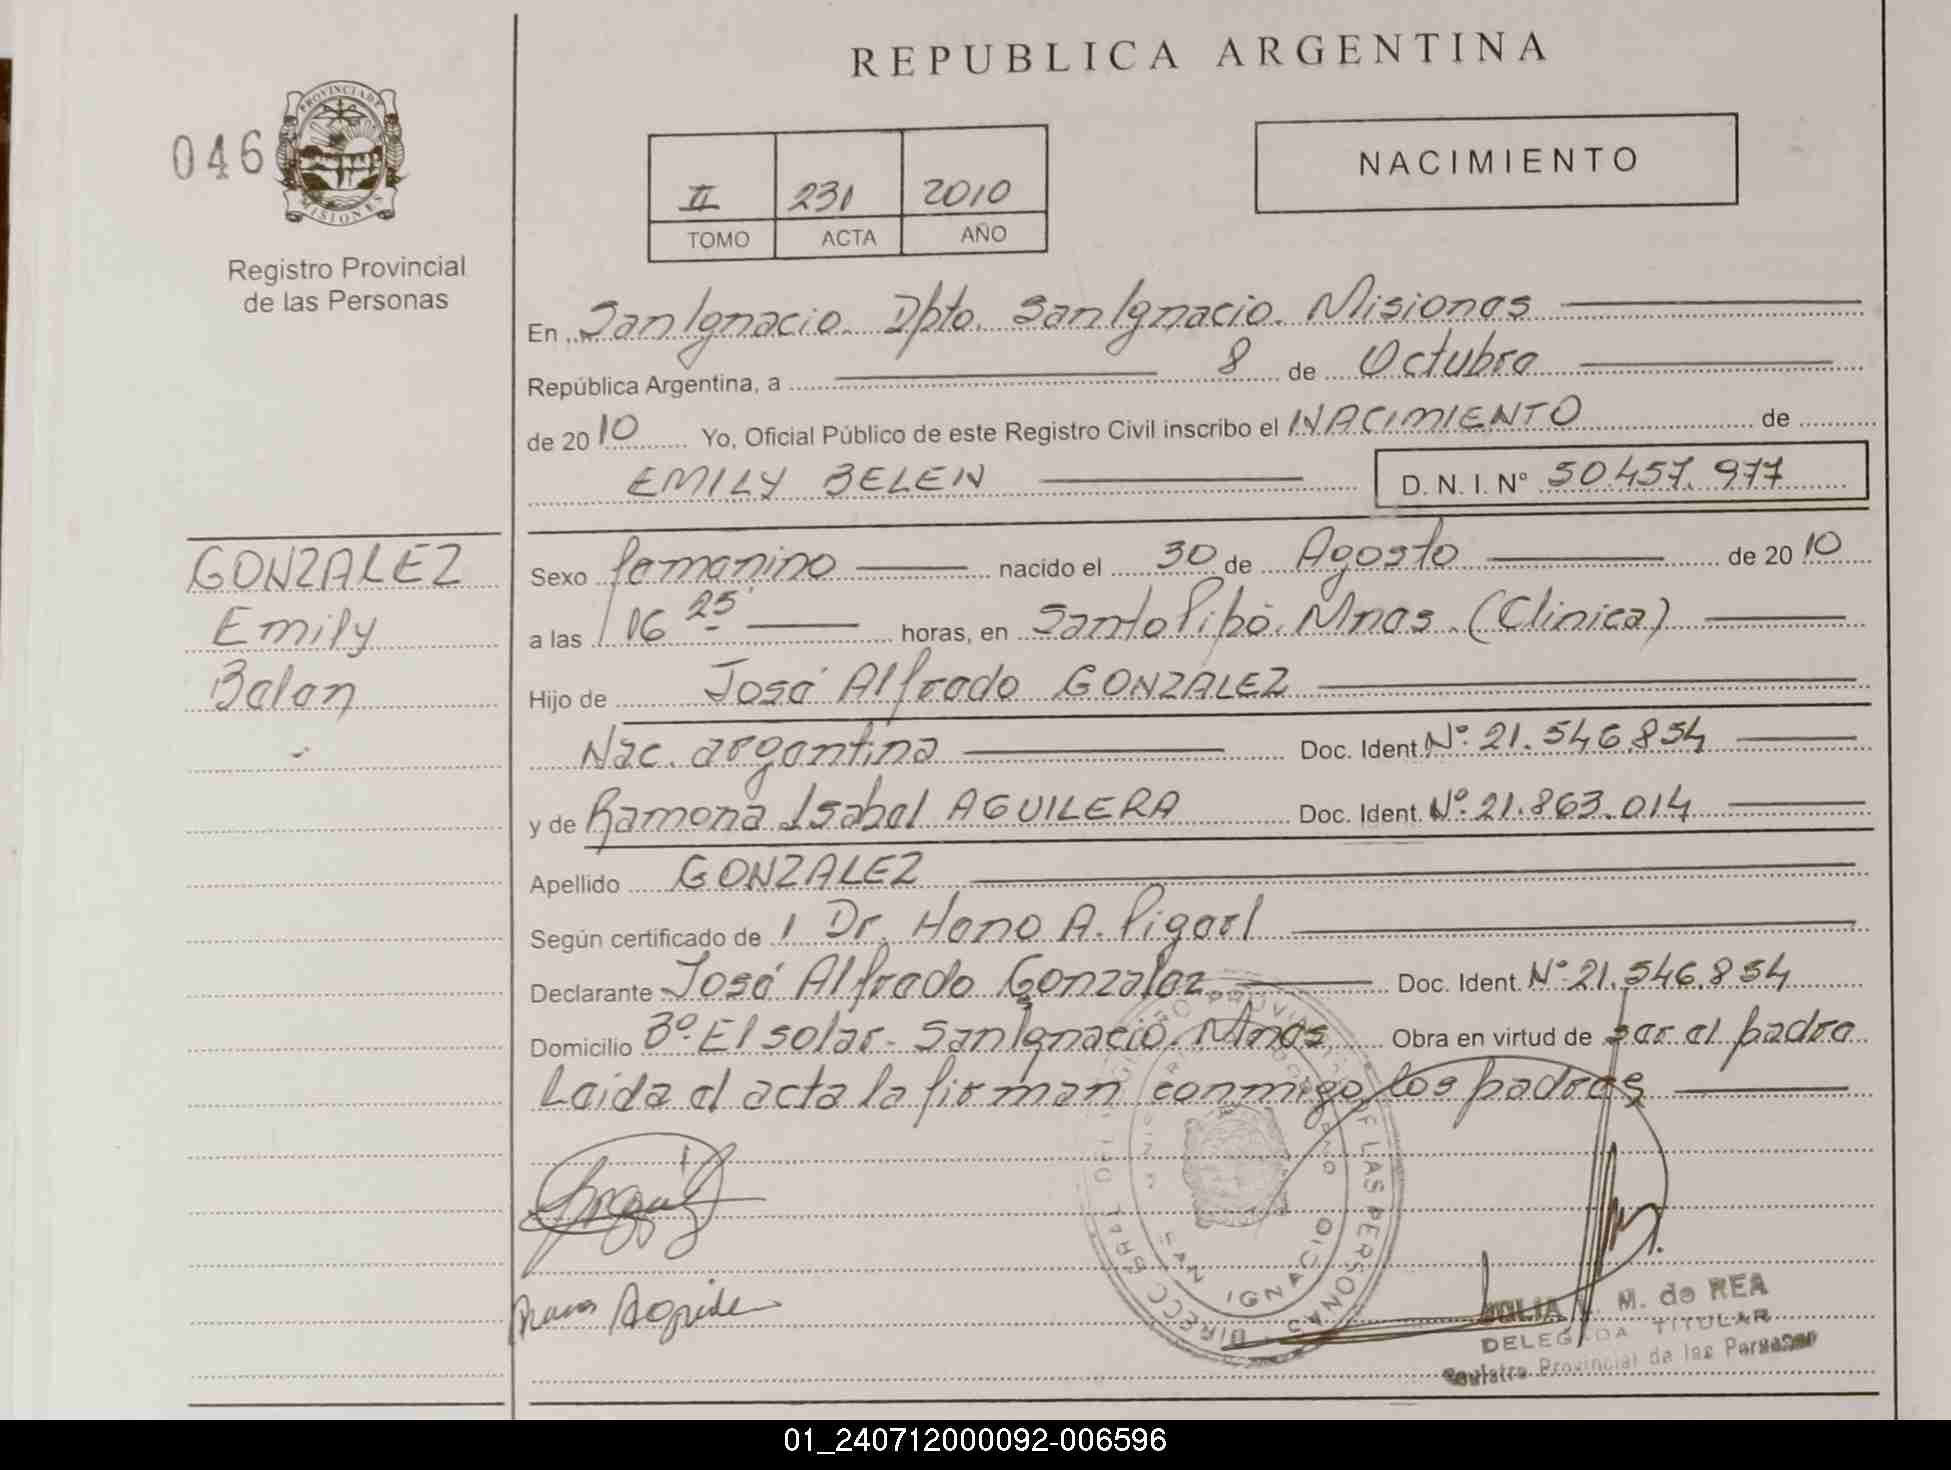 REPUBLICA ARGENTINA
046
PROVINCIA DE
MISIONES
Registro Provincial
de las Personas
II 231 2010
TOMO ACTA AÑO
NACIMIENTO
En San Ignacio. Dpto. San Ignacio. Misiones
República Argentina, a 8 de Octubre
de 2010 Yo, Oficial Público de este Registro Civil inscribo el NACIMIENTO de
EMILY BELEN D. N. I. N° 50.457.977
GONZALEZ
Emily
Belen
Sexo femenino nacido el 30 de Agosto de 2010
a las 16 25 horas, en Santo Pipó. Mnes. (Clinica)
Hijo de José Alfredo GONZALEZ
Nac. argentina Doc. Ident. Nº 21.546.854
y de Ramona Isabel AGUILERA Doc. Ident. Nº 21.863.014
Apellido GONZALEZ
Según certificado de Dr. Hano A. Pigerl
Declarante José Alfredo Gonzalez Doc. Ident. Nº 21.546.854
Domicilio Bº El solar - San Ignacio. Mnes. Obra en virtud de ser el padre
Leida el acta la firman conmigo los padres
SAN IGNACIO
JULIA M. de REA
DELEGADA TITULAR
Registro Provincial de las Personas
01_240712000092-006596